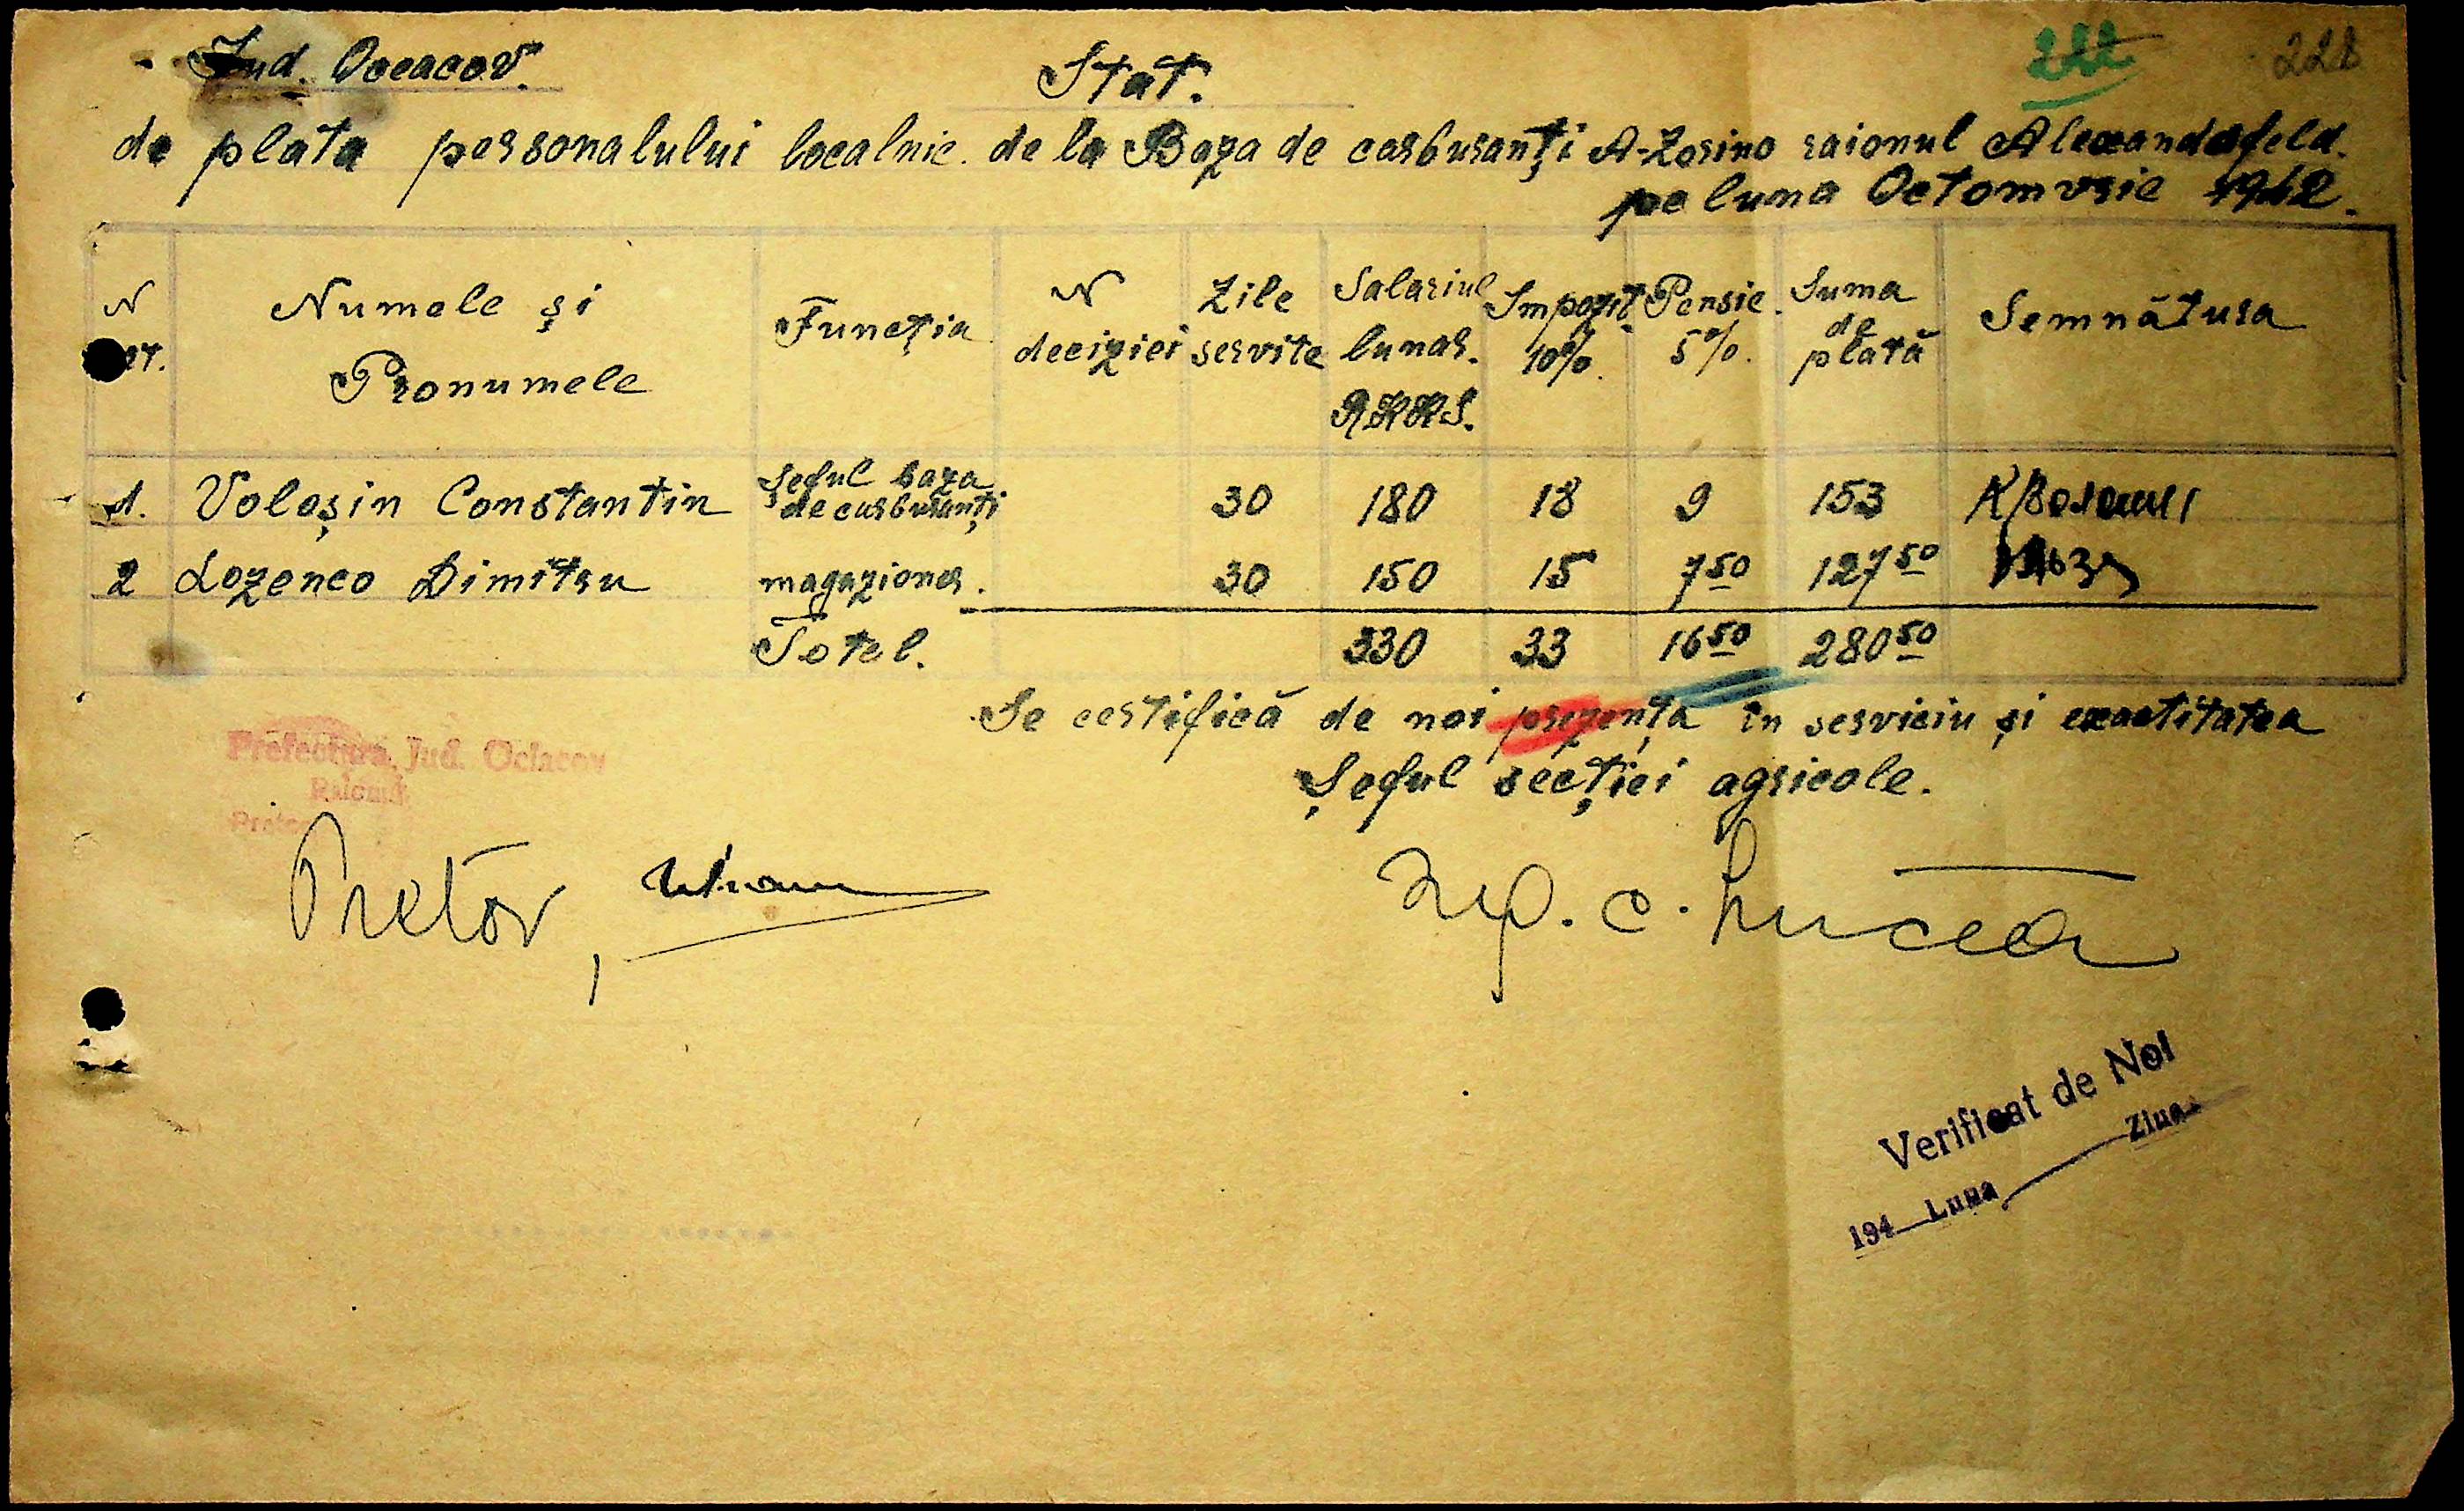 Jud. Oceacov.
Stat.
222
228
de plata personalului localnic. de la Baza de carburanți A-Zorino raionul Alexandrfeld.
pe luna Octomvrie 1942.
N crt.
Numele și Pronumele
Funcția
N deciziei
Zile servite
Salariul lunar. RKKS.
Impozit 10%.
Pensie. 5%.
Suma de plată
Semnătura
1. Voloșin Constantin șeful baza de carburanți 30 180 18 9 153
2 Lozenco Dimitru magazioner. 30 150 15 7 50 127 50
Totel. 330 33 16 50 280 50
Se certifică de noi prezența în serviciu și exactitatea
Șeful secției agricole.
Prefectura Jud. Ociacov
Pretor,
C. Luncea
Verificat de Noi
194 Luna Ziua